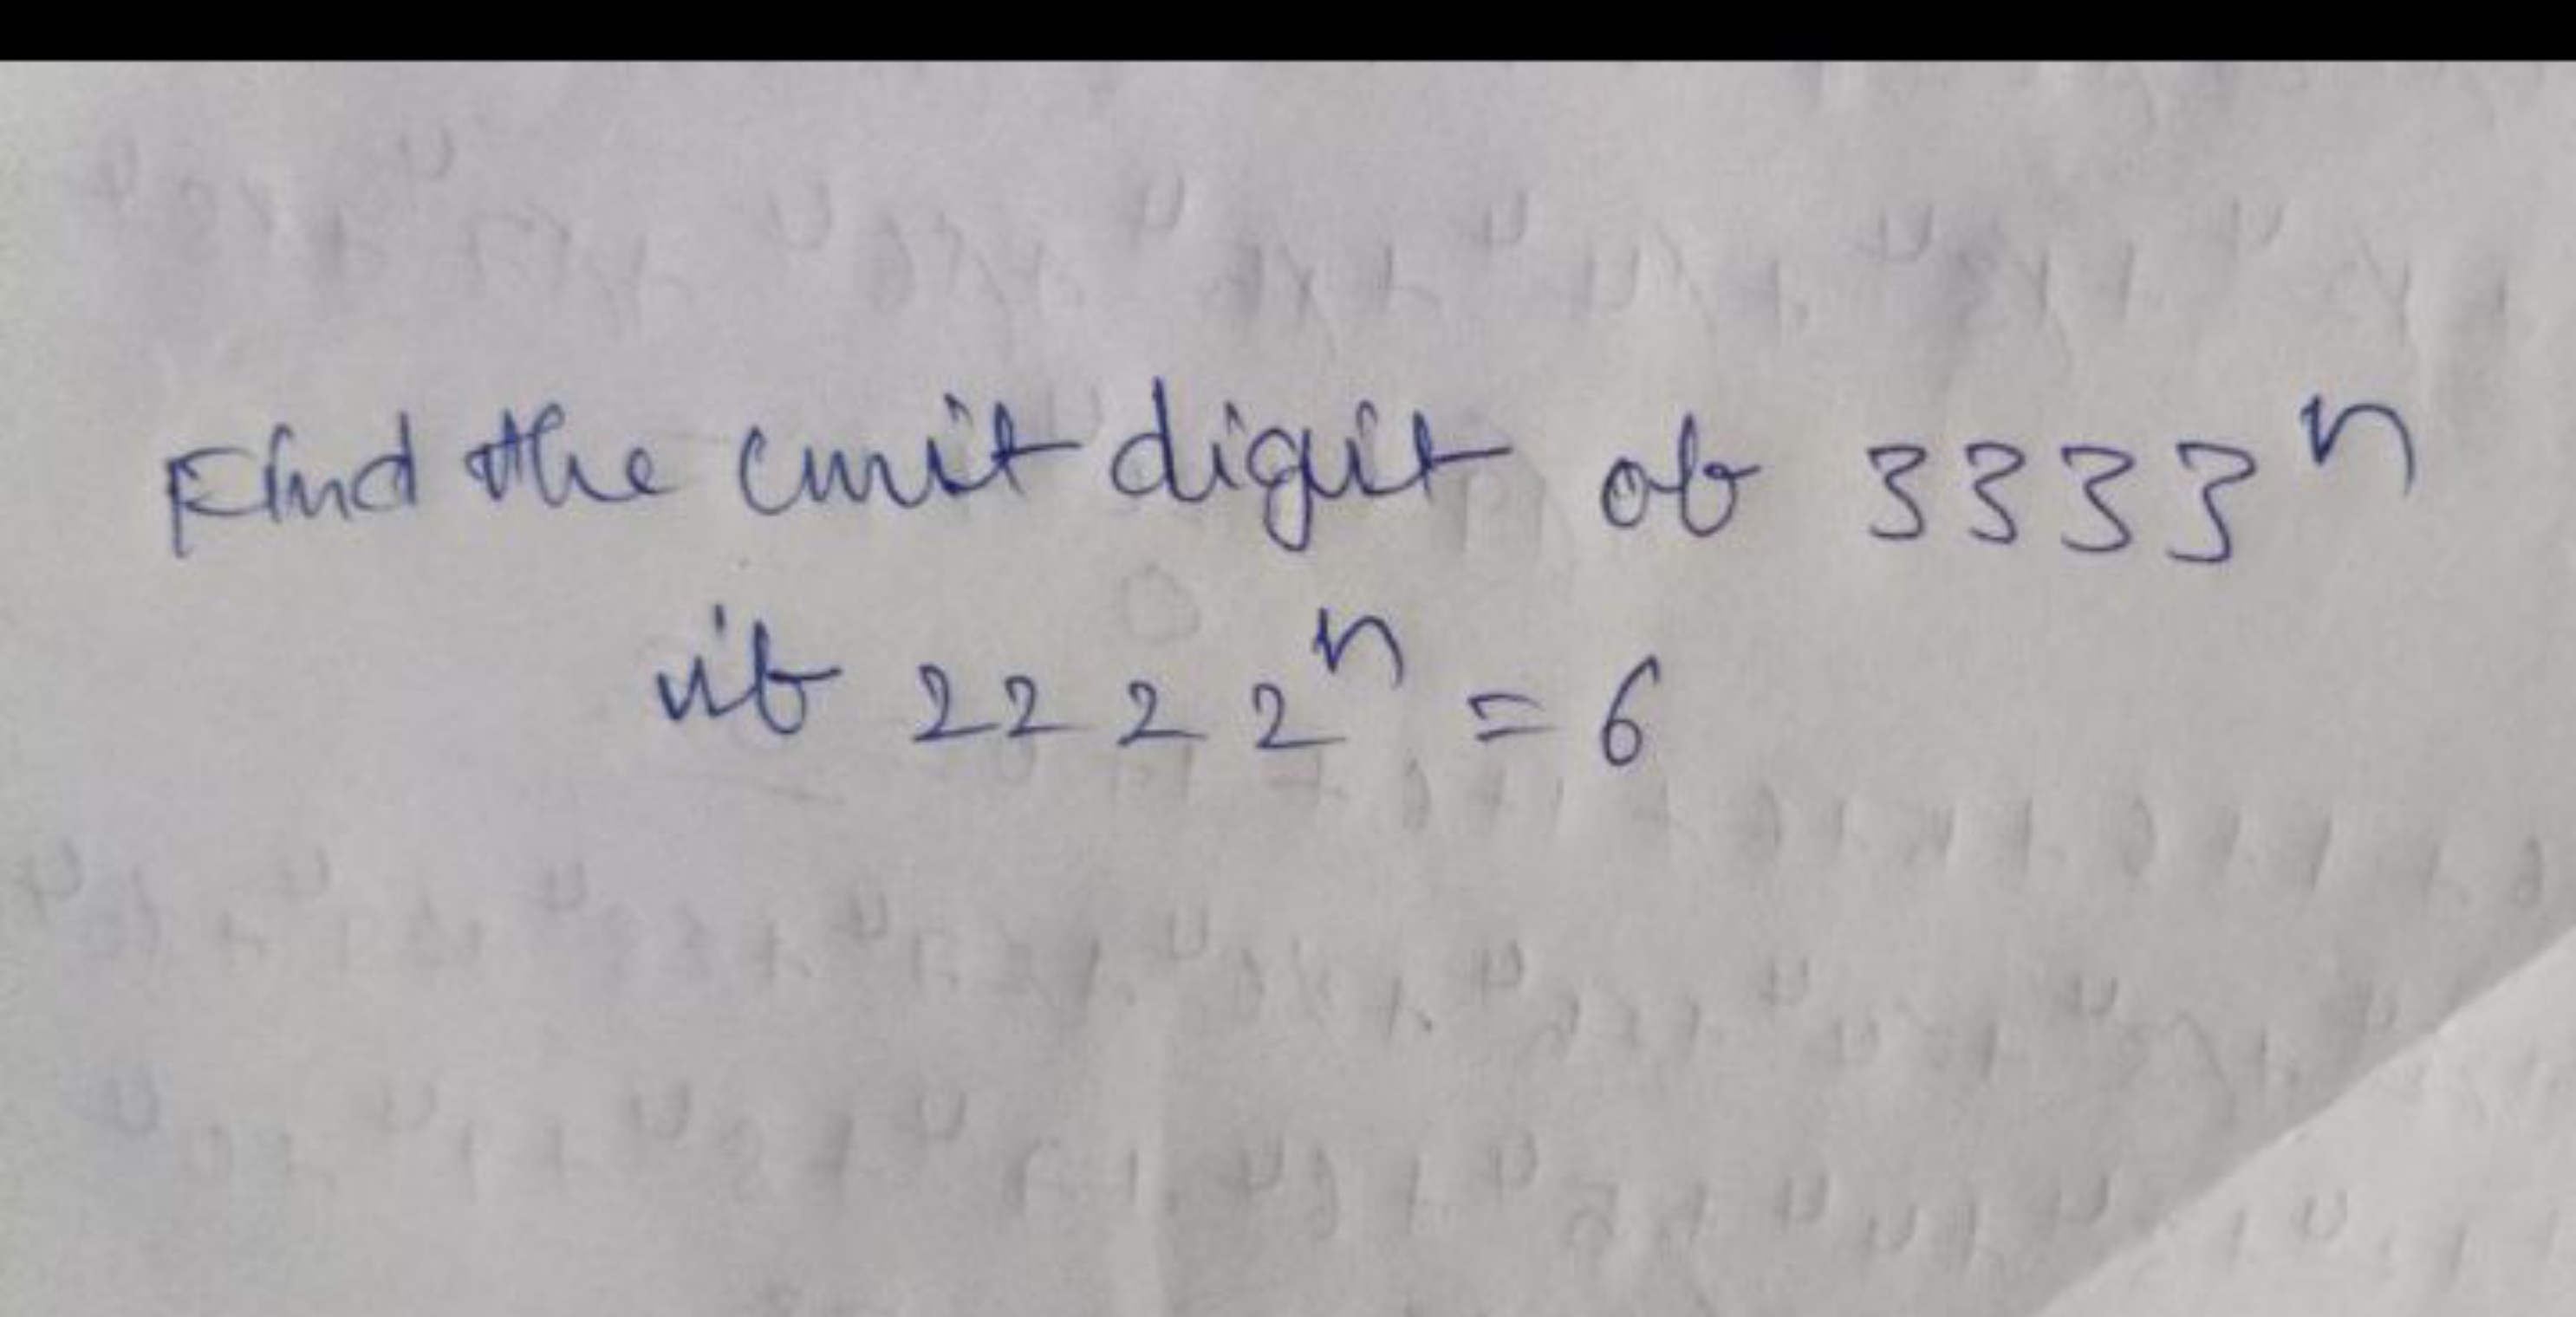 Find the unit digit of 3333ⁿ
if 2222ⁿ = 6